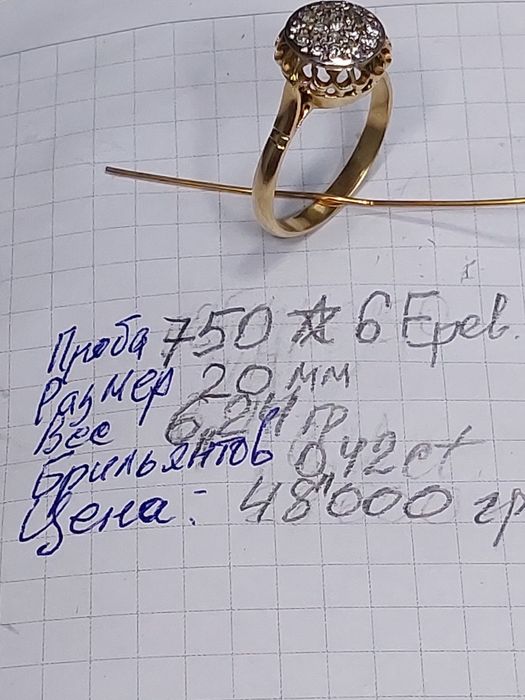 Проба 750 ☆ 6 Ерев.
Размер 20 мм
Вес 6,24 гр
Брильянтов 0,42 ct
Цена: 48'000 гр